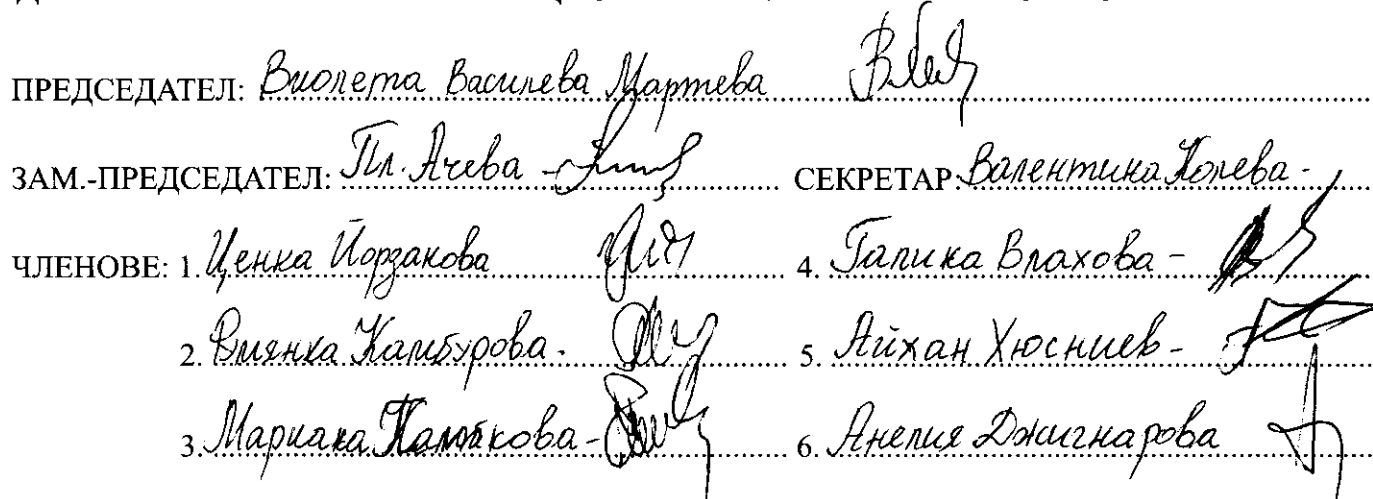 ПРЕДСЕДАТЕЛ: Виолета Василева Мартева
ЗАМ.-ПРЕДСЕДАТЕЛ: Пл. Ачева - СЕКРЕТАР: Валентина Колева -
ЧЛЕНОВЕ: 1. Ценка 4. Галика Влахова -
2. Камбурова. 5. Айхан Хюсниев -
3. Мариана 6. Анелия Джигнарова